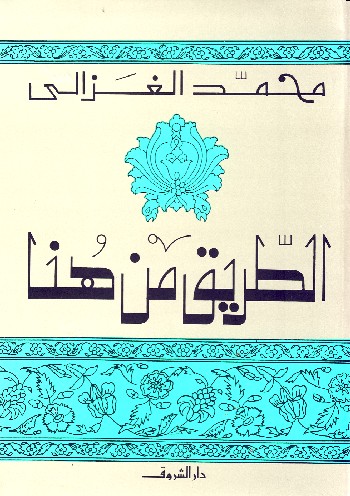 محمّد الغزالى
الطّريق من هُنا
دار الشروق